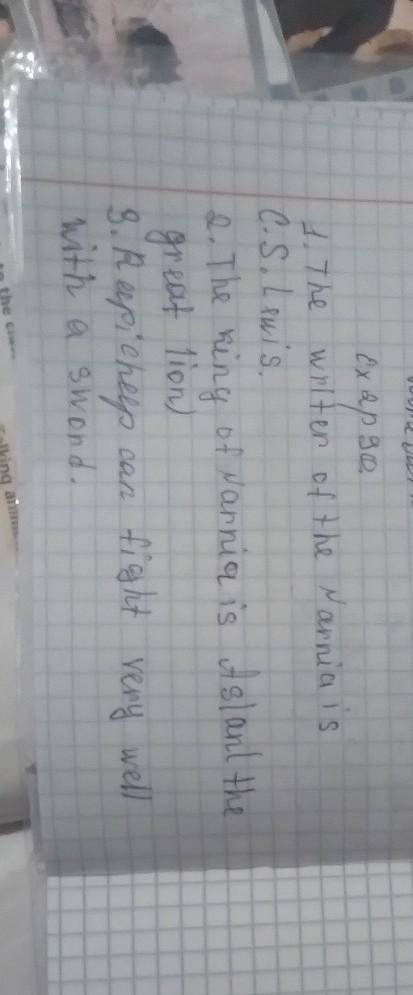 ex 2 p 90
1. The writer of the Narnia is
C.S. Lewis.
2. The king of Narnia is Aslan( the
great lion)
3. Reepicheep can fight very well
with a sword.
to the
talking anim